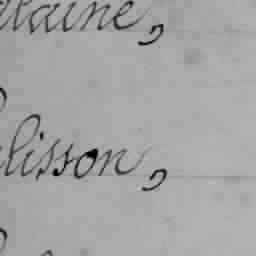 elaine,
lisson,